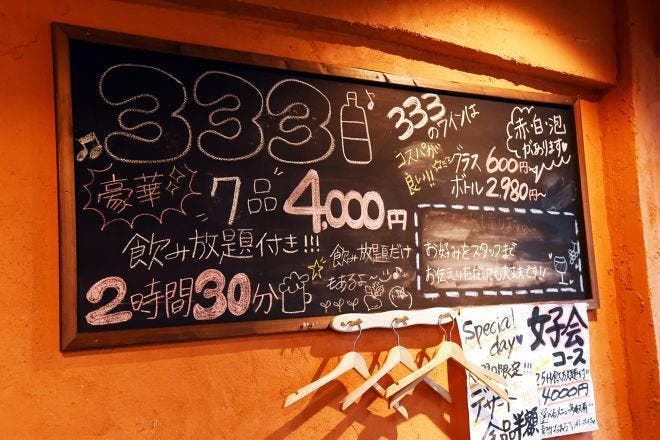 333
豪華
7品 4,000円
飲み放題付き!!!
2時間30分
飲み放題だけ
もあるよ〜
333
のワインは
コスパが
良い!!
グラス 600円〜
ボトル 2,980円〜
赤・白・泡
があります♥
お好みをスタッフまで
お伝えいただいても大丈夫です!!
Special
day♥
デザート
全品半額
女子会
コース
4000円